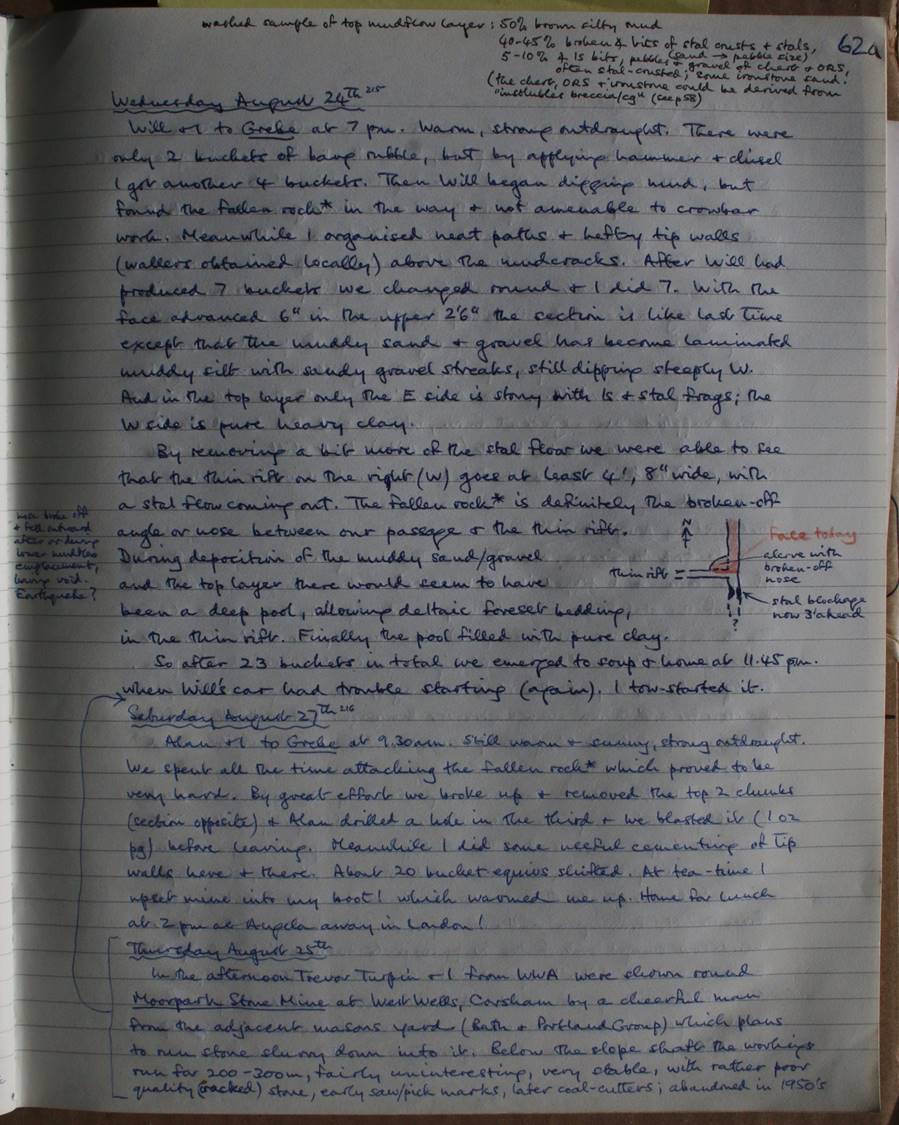 washed sample of top mudflow layer: 50% brown silty mud
40-45% broken & bits of stal crusts & stals,
(sand → pebble size)
5-10% & ls bits, pebbles & gravel of chert & ORS,
often stal-crusted; some ironstone sand.
(the chert, ORS & ironstone could be derived from
"insolubles breccia/cg" (see p58)
62a
Wednesday August 24th 215
Will & I to Grebe at 7 pm. Warm, strong outdraught. There were
only 2 buckets of bang rubble, but by applying hammer & chisel
I got another 4 buckets. Then Will began digging mud, but
found the fallen rock* in the way & not amenable to crowbar
work. Meanwhile I organised neat paths & hefty tip walls
(wallers obtained locally) above the mudcracks. After Will had
produced 7 buckets we changed round & I did 7. With the
face advanced 6" in the upper 2'6" the section is like last time
except that the muddy sand & gravel has become laminated
muddy silt with sandy gravel streaks, still dipping steeply W.
And in the top layer only the E side is stony with ls & stal frags; the
W side is pure heavy clay.
By removing a bit more of the stal floor we were able to see
that the thin rift on the right (W) goes at least 4', 8" wide, with
a stal flow coming out. The fallen rock* is definitely the broken-off
angle or nose between our passage & the thin rift.
During deposition of the muddy sand/gravel
and the top layer there would seem to have
been a deep pool, allowing deltaic foreset bedding,
in the thin rift. Finally the pool filled with pure clay.
nose broke off
& fell outward
after or during
lower mudflow
emplacement,
leaving void.
Earthquake?
N
Face today
alcove with
broken-off
nose
thin rift
stal blockage
now 3' ahead
?
So after 23 buckets in total we emerged to soup & home at 11.45 pm.
when Will's car had trouble starting (again). I tow-started it.
Saturday August 27th 216
Alan & I to Grebe at 9.30am. Still warm & sunny, strong outdraught.
We spent all the time attacking the fallen rock* which proved to be
very hard. By great effort we broke up & removed the top 2 chunks
(section opposite) & Alan drilled a hole in the third & we blasted it (1 oz
pg) before leaving. Meanwhile I did some useful cementing of tip
walls here & there. About 20 bucket equivs shifted. At tea-time I
upset mine into my boot! which warmed me up. Home for lunch
at 2 pm as Angela away in London!
Thursday August 25th
In the afternoon Trevor Turpin & I from WWA were shown round
Moorpark Stone Mine at West Wells, Corsham by a cheerful man
from the adjacent masons yard (Bath & Portland Group) which plans
to run stone slurry down into it. Below the slope shaft the workings
run for 200-300m, fairly uninteresting, very stable, with rather poor
quality (cracked) stone, early saw/pick marks, later coal-cutters; abandoned in 1950's